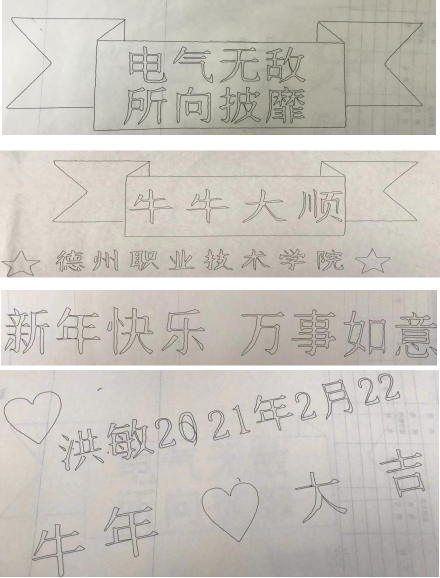 电气无敌
所向披靡
牛牛大顺
德州职业技术学院
新年快乐 万事如意
洪敏2021年2月22
牛年大吉